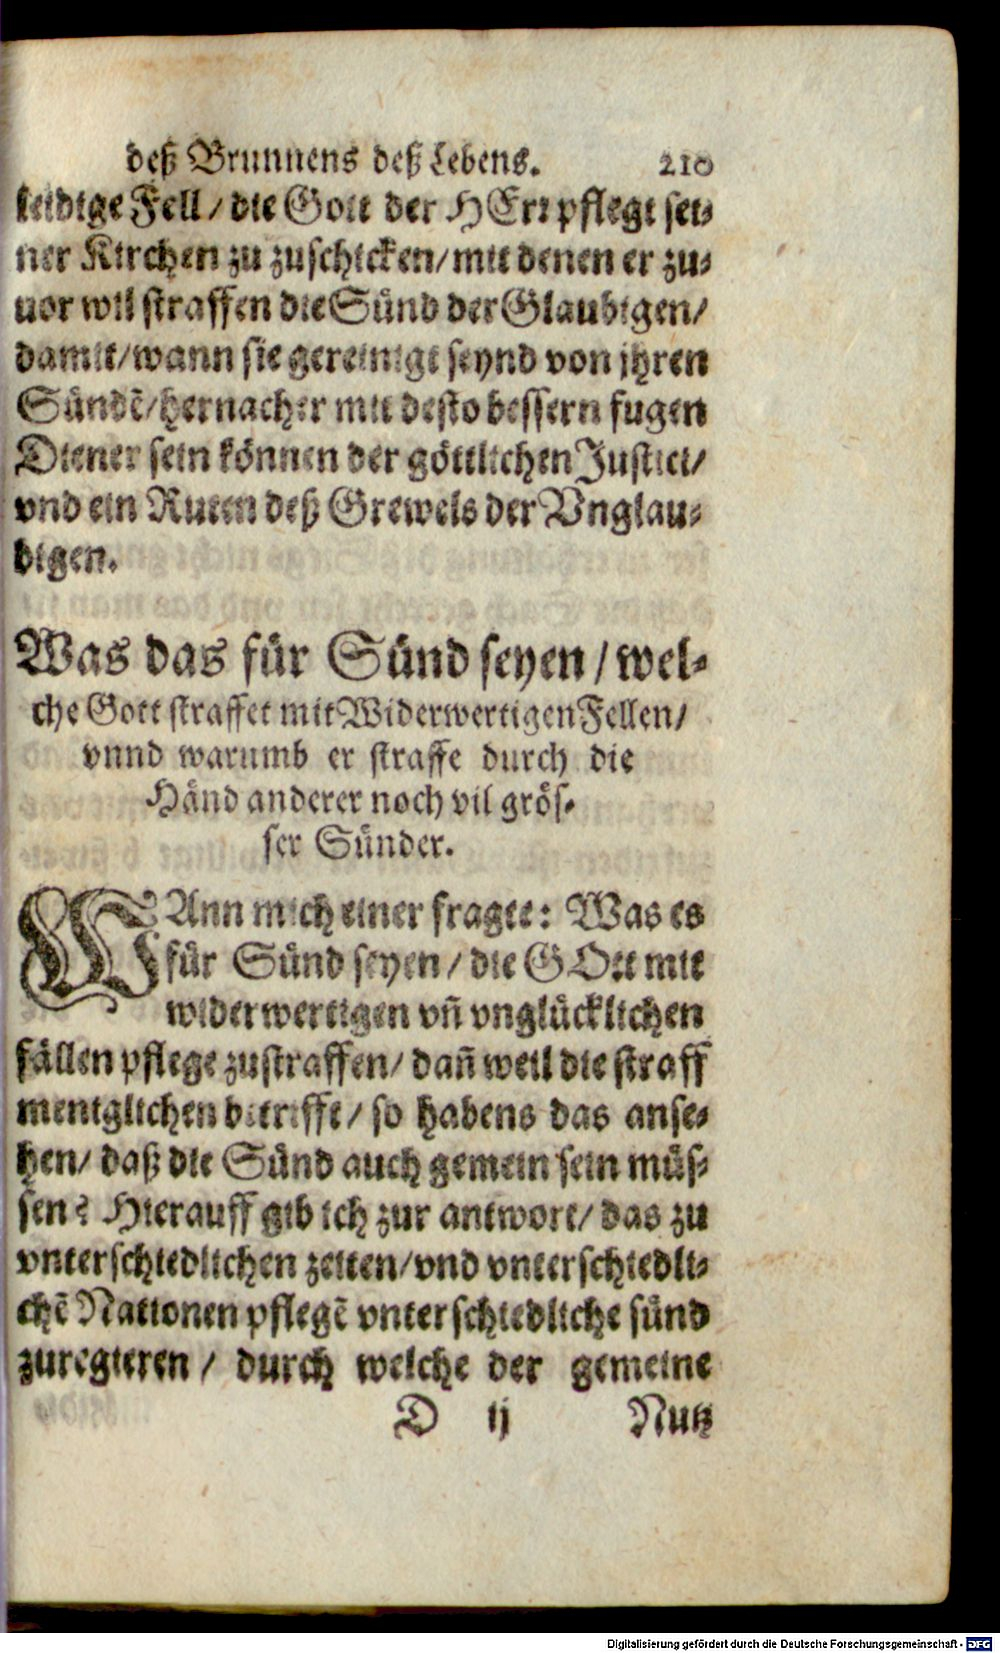 deß Brunnens deß Lebens. 210
leidige Fell / die Gott der HErr pflegt sei-
ner Kirchen zu zuschicken / mit denen er zu-
uor wil straffen die Sünd der Glaubigen /
damit / wann sie gereinigt seynd von jhren
Sündẽ / hernacher mit desto bessern fugen
Diener sein können der göttlichen Justici /
vnd ein Ruten deß Grewels der Vnglau-
bigen.
Was das für Sünd seyen / wel-
che Gott straffet mit Widerwertigen Fellen /
vnnd warumb er straffe durch die
Händ anderer noch vil grös-
ser Sünder.
WAnn mich einer fragte: Was es
für Sünd seyen / die GOtt mit
widerwertigen vñ vnglücklichen
fällen pflege zustraffen / dañ weil die straff
meniglichen betrifft / so habens das anse-
hen / daß die Sünd auch gemein sein müs-
sen? Hierauff gib ich zur antwort / das zu
vnterschiedlichen zeiten / vnd vnterschiedli-
chẽ Nationen pflegẽ vnterschiedliche sünd
zuregieren / durch welche der gemeine
D ij Nutz
Digitalisierung gefördert durch die Deutsche Forschungsgemeinschaft - DFG